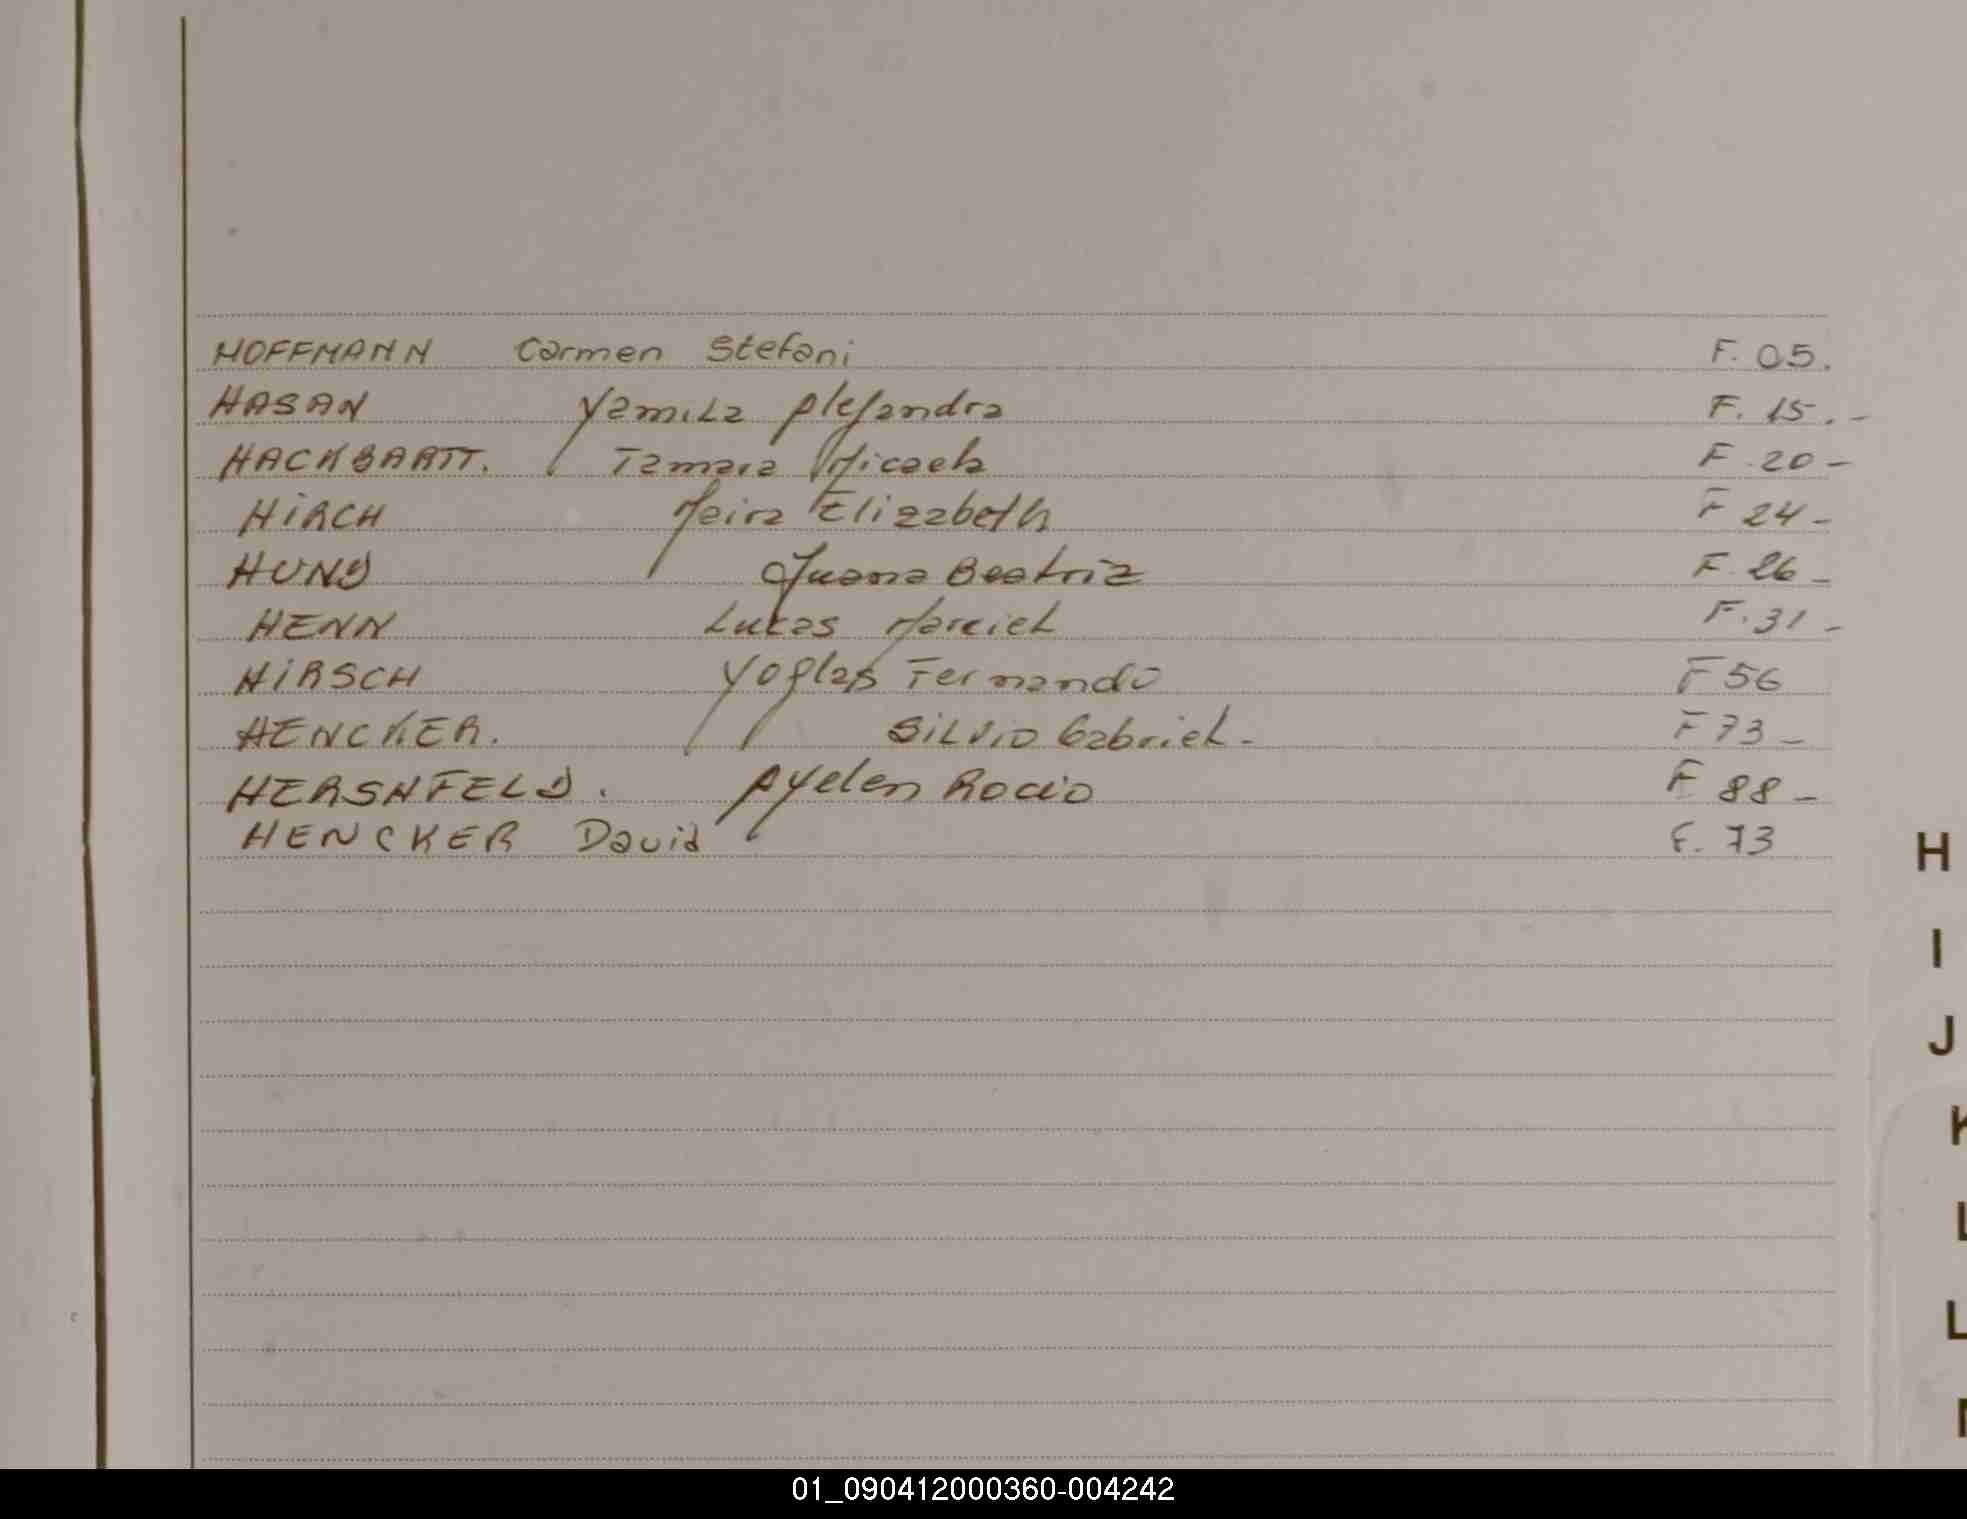 HOFFMANN Carmen Stefani F. 05.
HASAN Yamila Alejandra F. 15.-
HACKBARTT. Tamara Micaela F 20-
HIRCH Meira Elizabeth F 24-
HUND Juana Beatriz F. 26-
HENN Lucas Marciel F. 31-
HIRSCH Fernando F 56
HENCKER. Silvio Gabriel- F 73-
HERSNFELD. Ayelen Rocio F 88-
HENCKER David F. 73
H
I
J
K
L
01_090412000360-004242